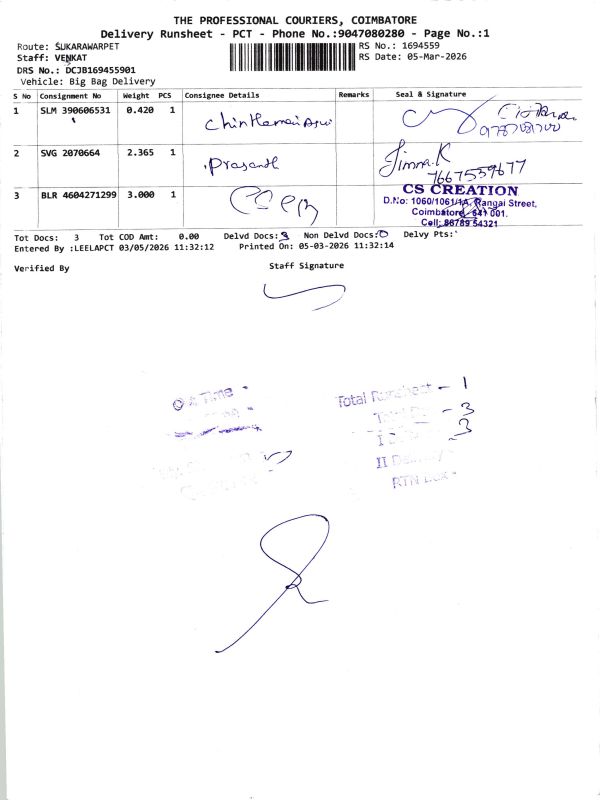 THE PROFESSIONAL COURIERS, COIMBATORE
Delivery Runsheet - PCT - Phone No.:9047080280 - Page No.:1
Route: SUKARAWARPET
RS No.: 1694559
Staff: VENKAT
RS Date: 05-Mar-2026
DRS No.: DCJB169455901
Vehicle: Big Bag Delivery
S No Consignment No Weight PCS Consignee Details Remarks Seal & Signature
1 SLM 390606531 0.420 1
2 SVG 2070664 2.365 1 Prasanth Jimma.K
7667539677
3 BLR 4604271299 3.000 1
CS CREATION
D.No: 1060/1061/1A, Rangai Street,
Coimbatore, 641 001.
Cell: 86789 54321
Tot Docs: 3 Tot COD Amt: 0.00 Delvd Docs:3 Non Delvd Docs:0 Delvy Pts:
Entered By :LEELAPCT 03/05/2026 11:32:12 Printed On: 05-03-2026 11:32:14
Verified By Staff Signature
Out Time -
Total Runsheet - 1
- 3
I 3
II Delivery -
RTN